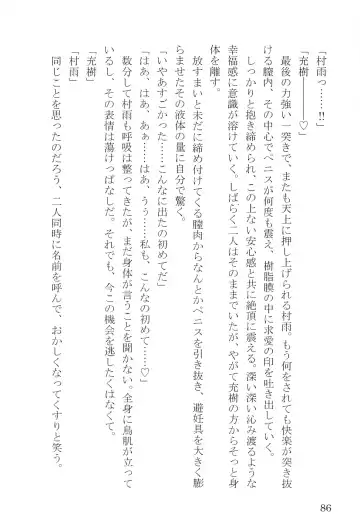 「村雨っ……!!」
「充樹────♡」
最後の力強い一突きで、またも天上に押し上げられる村雨。もう何をされても快楽が突き抜
ける膣内、その中心でペニスが何度も震え、樹脂膜の中に求愛の印を吐き出していく。
しっかりと抱き締められ、この上ない安心感と共に絶頂に震える。深い深い沁み渡るような
幸福感に意識が溶けていく。しばらく二人はそのままでいたが、やがて充樹の方からゆっくりと
体を離す。
放すまいと未だに締め付けてくる膣肉からなんとかペニスを引き抜き、避妊具を大きく膨
らませたその液体の量に自分で驚く。
「いやあすごかった……こんなに出たの初めてだ」
「はあ、はあ、あぁ……はあ、うぅ……私も、こんなの初めて……♡」
数分して村雨も呼吸は整ってきたが、まだ身体が言うことを聞かない。全身に鳥肌が立って
いるし、その表情は蕩けっぱなしだ。それでも、今この機会を逃したくはなくて。
「充樹」
「村雨」
同じことを思ったのだろう、二人同時に名前を呼んで、おかしくなってくすりと笑う。
86